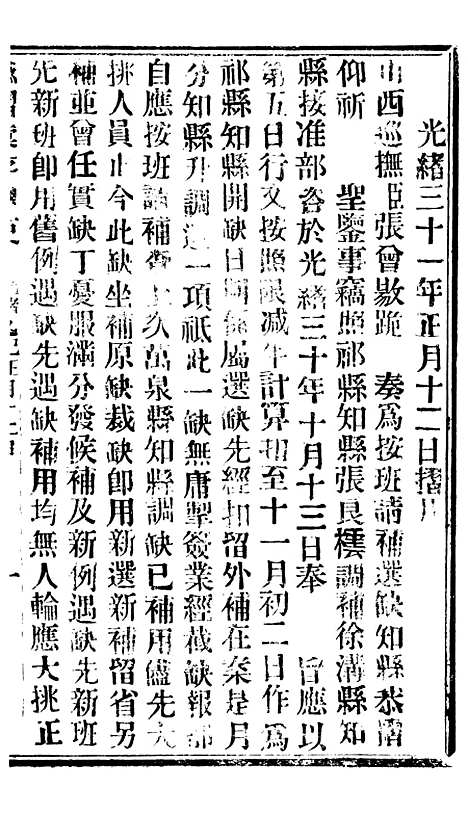 光緒三十一年正月十二日摺片
山西巡撫臣張曾敭跪　奏爲按班請補選缺知縣恭摺
仰祈　聖鑒事竊照祁縣知縣張良櫻調補徐溝縣知
縣接准部咨於光緒三十年十月十三日奉　旨應以
第五日行文按照限减半計算扣至十一月初二日作爲
祁縣知縣開缺日期係屬選缺先經扣留外補在案是月
分知縣升調遺一項祇此一缺無庸掣簽業經截缺報部
自應按班請補查上次萬泉縣知縣調缺已補用儘先大
挑人員止今此缺坐補原缺裁缺即用新選新補留省另
補並曾任實缺丁憂服滿分發候補及新例遇缺先新班
先新班即用舊例遇缺先遇缺補用均無人輪應大挑正